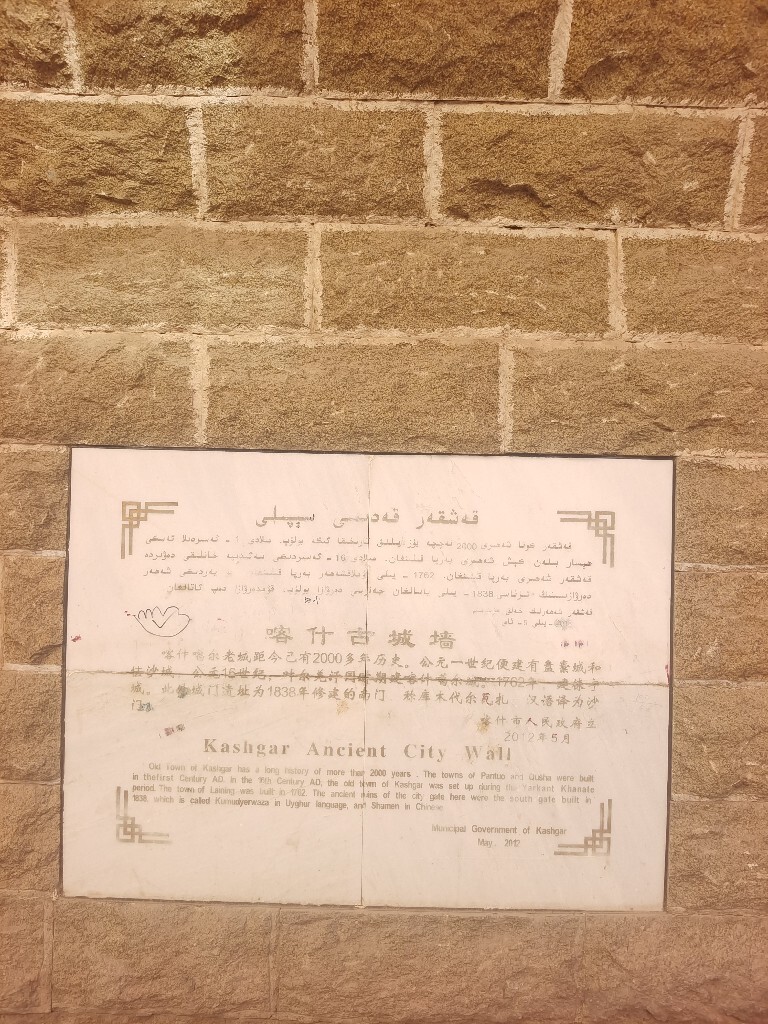 قەشقەر قەدىمىي سېپىلى
قەشقەر كونا شەھىرى 2000 نەچچە يۈز يىللىق تارىخقا ئىگە بولۇپ، مىلادى 1 - ئەسىردىلا
ھېسار بىلەن شەھىرى بەرپا قىلىنغان. مىلادى 16 - ئەسىردىكى سەئىدىيە خانلىقى دەۋرىدە
قەشقەر شەھىرى بەرپا قىلىنغان. 1762 - يىلى بەرپا شەھەر
1838 - يىلى ياسالغان جەنۇبىي دەرۋازا بولۇپ، قۇمدەرۋازا دەپ ئاتالغان
قەشقەر شەھەرلىك خەلق
يىلى 5 - ئاي
喀什古城墙
喀什噶尔老城距今已有2000多年历史。公元一世纪便建有盘橐城和
沙城。公元16世纪，叶尔羌汗国时期建喀什噶尔城。1762年 建徕宁
城。此 城门遗址为1838年修建的南门 称库木代尔瓦扎 汉语译为沙
门。
喀什市人民政府立
2012年5月
Kashgar Ancient City Wall
Old Town of Kashgar has a long history of more than 2000 years . The towns of Pantuo and Susha were built
in thefirst Century AD. In the 16th Century AD, the old town of Kashgar was set up during the Yarkant Khanate
period. The town of Laining was built in 1762. The ancient ruins of the city gate here were the south gate built in
1838, which is called Kumudyerwaza in Uyghur language, and Shamen in Chinese
Municipal Government of Kashgar
May, 2012